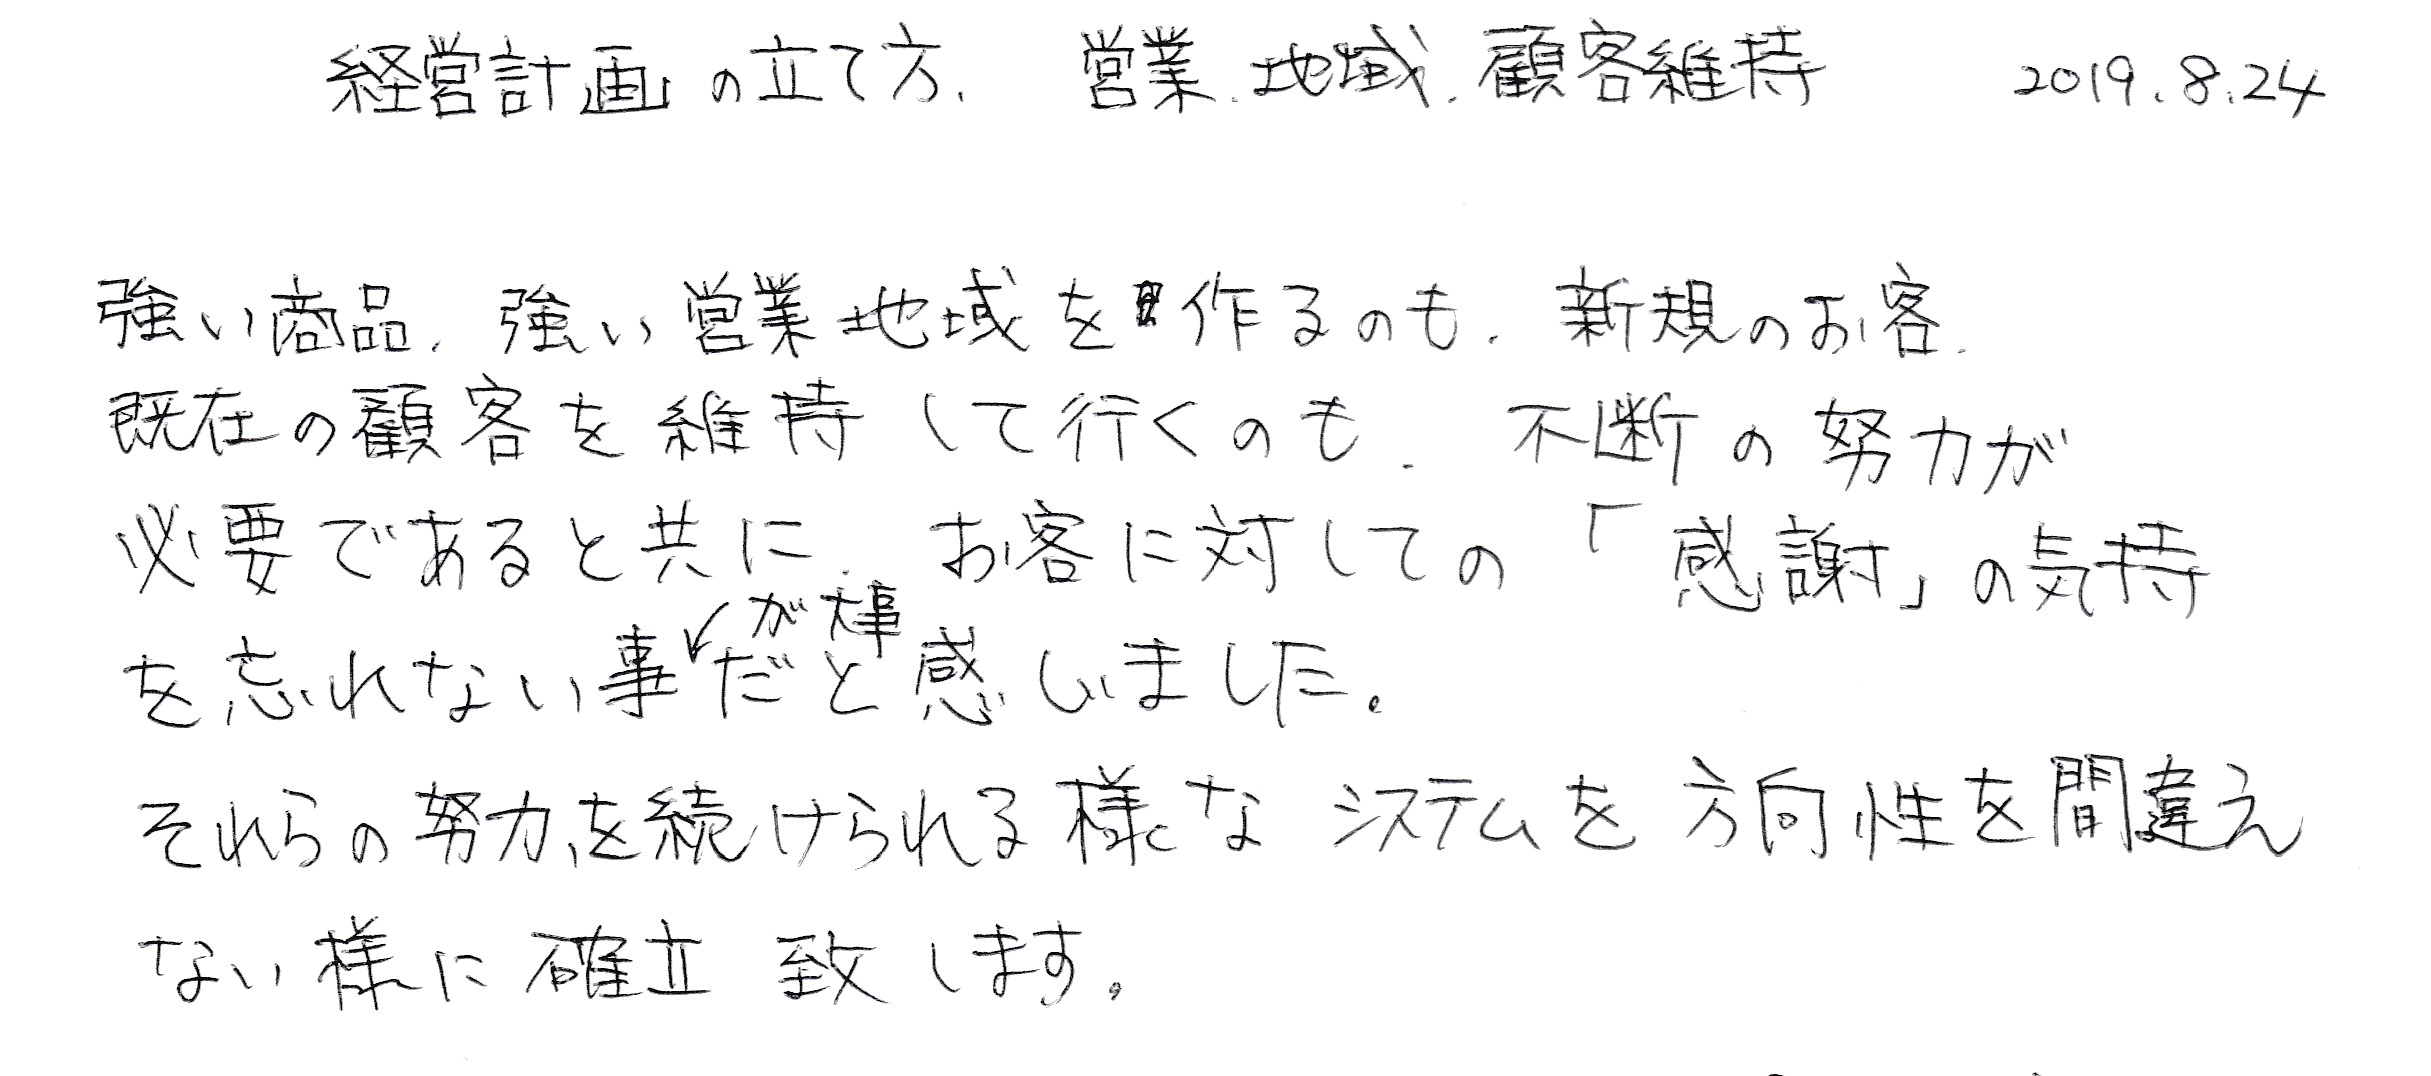 経営計画の立て方、 営業、地域、顧客維持 2019.8.24
強い商品、強い営業地域を作るのも、新規のお客、
既在の顧客を維持して行くのも、不断の努力が
必要であると共に、お客に対しての「感謝」の気持
が大事
を忘れない事だと感じました。
それらの努力を続けられる様なシステムを方向性を間違え
ない様に確立致します。